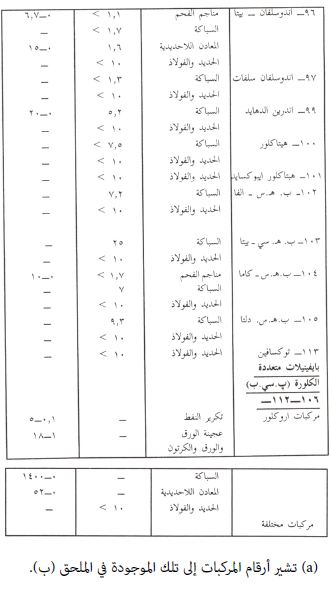 ٩٦ــ اندوسلفان ــ بيتا مناجم الفحم ١,١ > ٠ــ٦,٧
السباكة ١,٧ > ــ
المعادن اللاحديدية ١,٦ ٠ــ١٥
الحديد والفولاذ ١٠ > ــ
٩٧ــ اندوسلفان سلفات السباكة ١,٣ > ــ
الحديد والفولاذ ١٠ > ــ
٩٩ــ اندرين الدهايد السباكة ٥,٢ ٠ــ٢٠
الحديد والفولاذ ١٠ > ــ
١٠٠ــ هيتاكلور السباكة ٧,٥ > ــ
الحديد والفولاذ ١٠ > ــ
١٠١ــ هيتاكلور ايبوكسايد الحديد والفولاذ ١٠ > ــ
١٠٢ــ ب. هـ.س ــ الفا السباكة ٧,٢ ــ
الحديد والفولاذ ١٠ > ــ
١٠٣ــ ب.هـ. سي ــ بيتا السباكة ٢٥ ــ
الحديد والفولاذ ١٠ > ــ
١٠٤ــ ب.هـ.س ــ كاما مناجم الفحم ١,٧ > ٠ــ١٠
السباكة ٧ ــ
الحديد والفولاذ ١٠ > ــ
١٠٥ــ ب.هـ.س. دلتا السباكة ٩,٣ ــ
الحديد والفولاذ ١٠ > ــ
١١٣ــ توكسافين الحديد والفولاذ ١٠ > ــ
بايفينيلات متعددة
الكلورة (پ.سي.ب)
١٠٦ــ١١٢ــ
مركبات اروكلور تكرير النفط ــ ٠,١ــ٥
عجينة الورق ــ ١ــ١٨
والورق والكرتون
السباكة ــ ٠ــ١٤٠٠
المعادن اللاحديدية ــ ٠ــ٥٢
الحديد والفولاذ ١٠ > ــ
مركبات مختلفة
(a) تشير أرقام المركبات إلى تلك الموجودة في الملحق (ب).